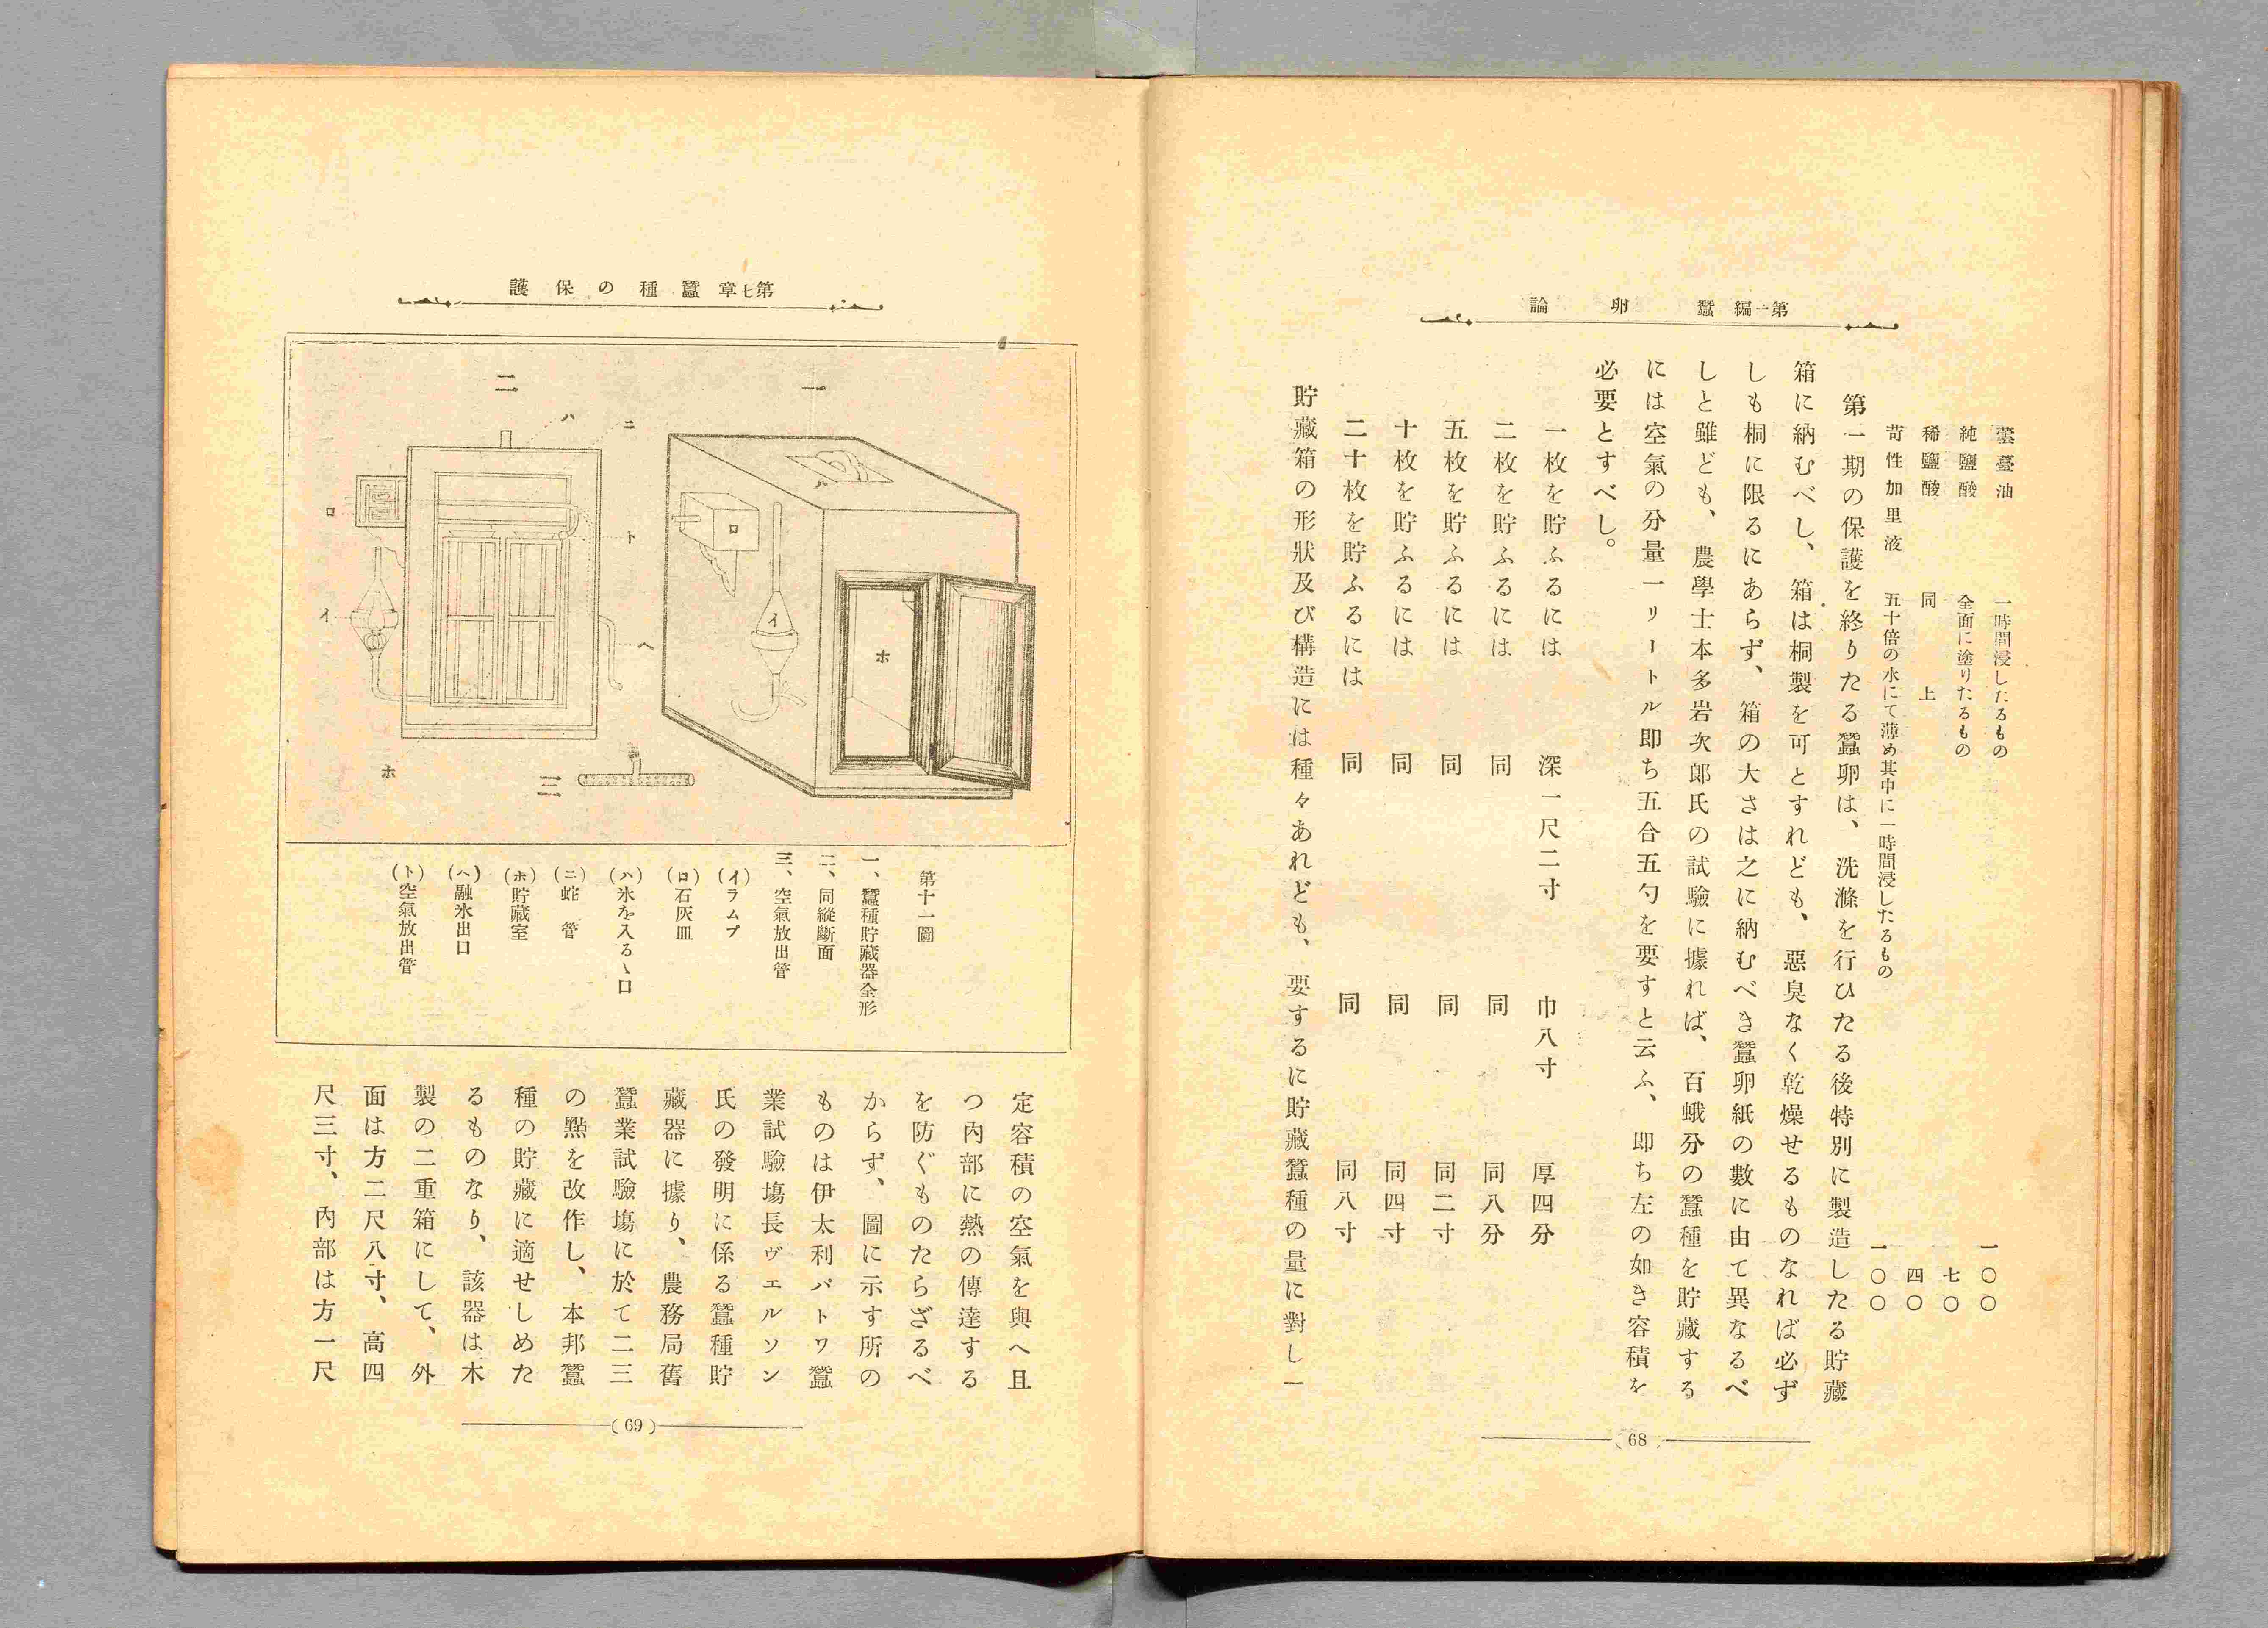 第一編 蠶卵論
蕓薹油 一時間浸したるもの 一〇〇
純鹽酸 全面に塗りたるもの 七〇
稀鹽酸 同上 四〇
苛性加里液 五十倍の水にて薄め其中に一時間浸したるもの 一〇〇
第一期の保護を終りたる蠶卵は、洗滌を行ひたる後特別に製造したる貯藏
箱に納むべし、箱は桐製を可とすれども、惡臭なく乾燥せるものなれば必ず
しも桐に限るにあらず、箱の大さは之に納むべき蠶卵紙の數に由て異なるべ
しと雖ども、農學士本多岩次郎氏の試驗に據れば、百蛾分の蠶種を貯藏する
には空氣の分量一リートル即ち五合五勺を要すと云ふ、即ち左の如き容積を
必要とすべし。
一枚を貯ふるには 深一尺二寸 巾八寸 厚四分
二枚を貯ふるには 同 同 同八分
五枚を貯ふるには 同 同 同二寸
十枚を貯ふるには 同 同 同四寸
二十枚を貯ふるには 同 同 同八寸
貯藏箱の形狀及び構造には種々あれども、要するに貯藏蠶種の量に對し一
68
第七章 蠶種の保護
一
二
三
イ
ロ
ハ
ホ
ハ
ニ
ロ
ト
イ
ヘ
ホ
第十一圖
一、蠶種貯藏器全形
二、同縱斷面
三、空氣放出管
(イ)ラムプ
(ロ)石灰皿
(ハ)氷を入るゝ口
(ニ)蛇管
(ホ)貯藏室
(ヘ)融氷出口
(ト)空氣放出管
定容積の空氣を與へ且
つ內部に熱の傳達する
を防ぐものたらざるべ
からず、圖に示す所の
ものは伊太利パトワ蠶
業試驗場長ヴエルソン
氏の發明に係る蠶種貯
藏器に據り、農務局舊
蠶業試驗塲に於て二三
の㸃を改作し、本邦蠶
種の貯藏に適せしめた
るものなり、該器は木
製の二重箱にして、外
面は方二尺八寸、高四
尺三寸、內部は方一尺
(69)